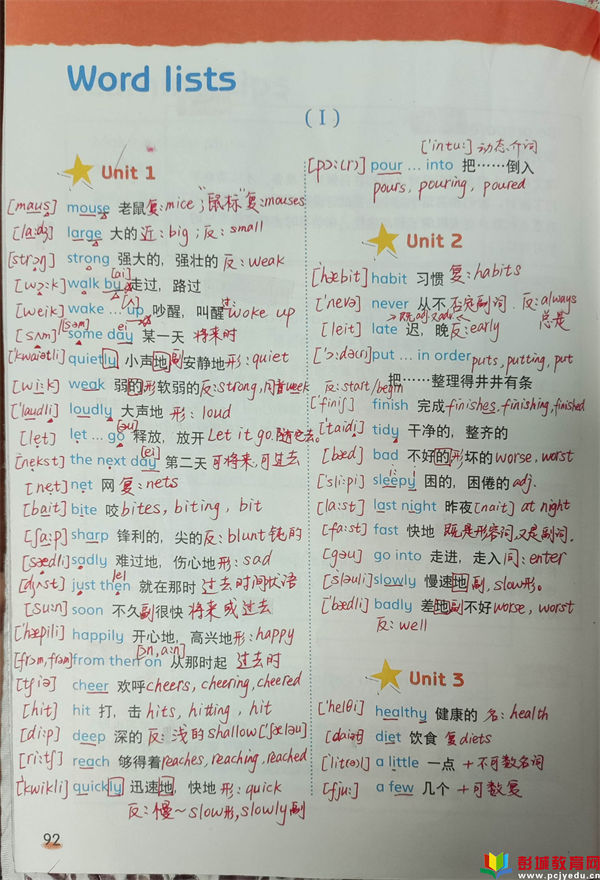 Word lists
( I )
Unit 1
[maus] mouse 老鼠 复: mice ; "鼠标"复: mouses
[la:dʒ] large 大的 近: big ; 反: small
[strɔŋ] strong 强大的，强壮的 反: weak
[wɔ:k] walk by 走过，路过
[ai]
[weik] wake … up 吵醒，叫醒 过: woke up
[ʌ]
[sʌm] some day 某一天 将来时
[səm] ei
[kwaiətli] quietly 小声地 副 安静地 形: quiet
[wi:k] weak 弱的 形 软弱的 反: strong, 同音week
['laudli] loudly 大声地 形: loud
[let] let … go 释放，放开 Let it go. 随它去。
[əu]
[nekst] the next day 第二天 可将来,可过去
[ei]
[net] net 网 复: nets
[bait] bite 咬 bites, biting, bit
[ʃa:p] sharp 锋利的，尖的 反: blunt 钝的
[sædli] sadly 难过地，伤心地 形: sad
[dʒʌst] just then 就在那时 过去时间状语
[e]
[su:n] soon 不久 副 很快 将来或过去
['hæpili] happily 开心地，高兴地 形: happy
[frɔm, frəm] from then on 从那时起 过去时
[ɔn, a:n]
[tʃiə] cheer 欢呼 cheers, cheering, cheered
[hit] hit 打，击 hits, hitting, hit
[di:p] deep 深的 反: 浅的 shallow ['ʃæləu]
[ri:tʃ] reach 够得着 reaches, reaching, reached
['kwikli] quickly 迅速地，快地 形: quick
反: 慢~ slow形, slowly副
92
['intu:] 动态介词
[pɔ:(r)] pour … into 把……倒入
pours, pouring, poured
Unit 2
['hæbit] habit 习惯 复: habits
['nevə] never 从不 否定副词. 反: always
总是
[leit] late 迟，晚 反: early
['ɔ:də(r)] put … in order puts, putting, put
把……整理得井井有条
反: start/begin
['finiʃ] finish 完成 finishes, finishing, finished
['taidi] tidy 干净的，整齐的
[bæd] bad 不好的 形 坏的 worse, worst
['sli:pi] sleepy 困的，困倦的 adj.
[la:st] last night 昨夜 [nait] at night
[fa:st] fast 快地 既是形容词,又是副词.
[gəu] go into 走进，走入 同: enter
['sləuli] slowly 慢速地 副, slow形。
['bædli] badly 差地 副 不好 worse, worst
反: well
Unit 3
['helθi] healthy 健康的 名: health
[daiət] diet 饮食 复 diets
['litəl] a little 一点 + 不可数名词
[fju:] a few 几个 + 可数复
彭城教育网
www.pcjyedu.cn